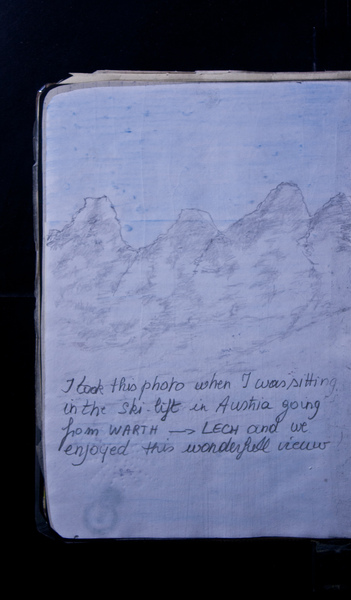 I took this photo when I was sitting
in the ski-lift in Austria going
from WARTH → LECH and we
enjoyed this wonderfull vieuw!